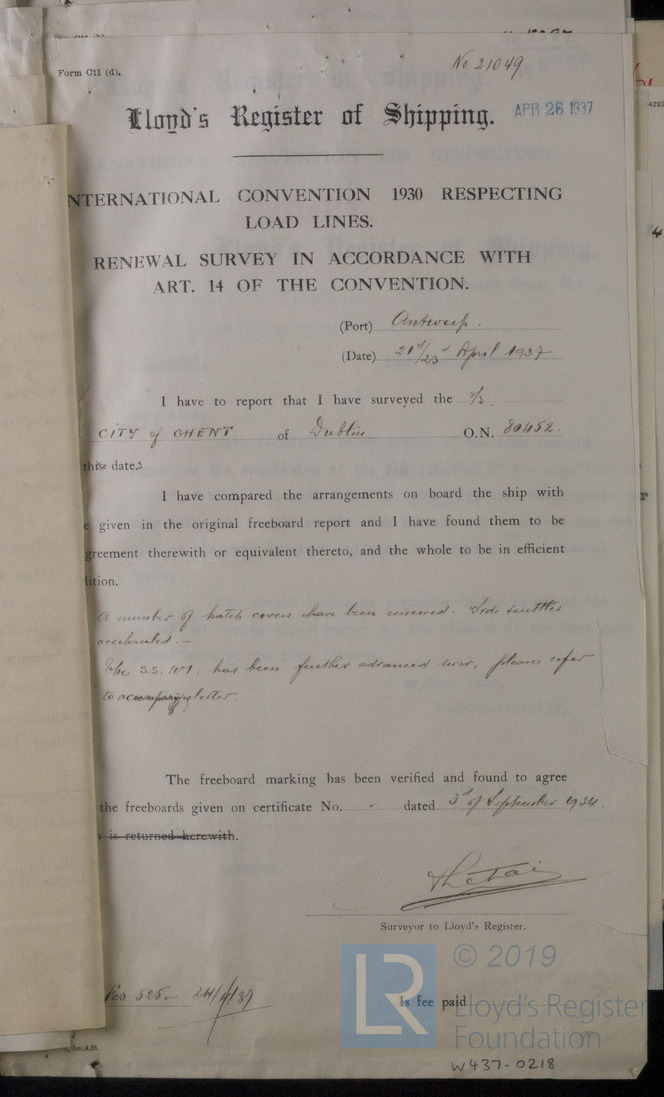 Form C11 (d).
No 21049
Lloyd's Register of Shipping.
APR 26 1937
NTERNATIONAL CONVENTION 1930 RESPECTING
LOAD LINES.
RENEWAL SURVEY IN ACCORDANCE WITH
ART. 14 OF THE CONVENTION.
(Port) Antwerp.
(Date) 21st/23rd April 1937
I have to report that I have surveyed the s/s
CITY of GHENT of Dublin O.N. 80452.
this dates.
I have compared the arrangements on board the ship with
e given in the original freeboard report and I have found them to be
greement therewith or equivalent thereto, and the whole to be in efficient
dition.
A number of hatch covers have been renewed. Side scuttles
overhauled. —
The S.S. No1. has been further advanced now, please refer
to accompanying letter.
The freeboard marking has been verified and found to agree
the freeboards given on certificate No. - dated 3rd of September 1934.
is returned herewith.
Surveyor to Lloyd's Register.
Fcs. 525.— 24/4/37
Is fee paid
© 2019
LR
Lloyd's Register
Foundation
W437-0218